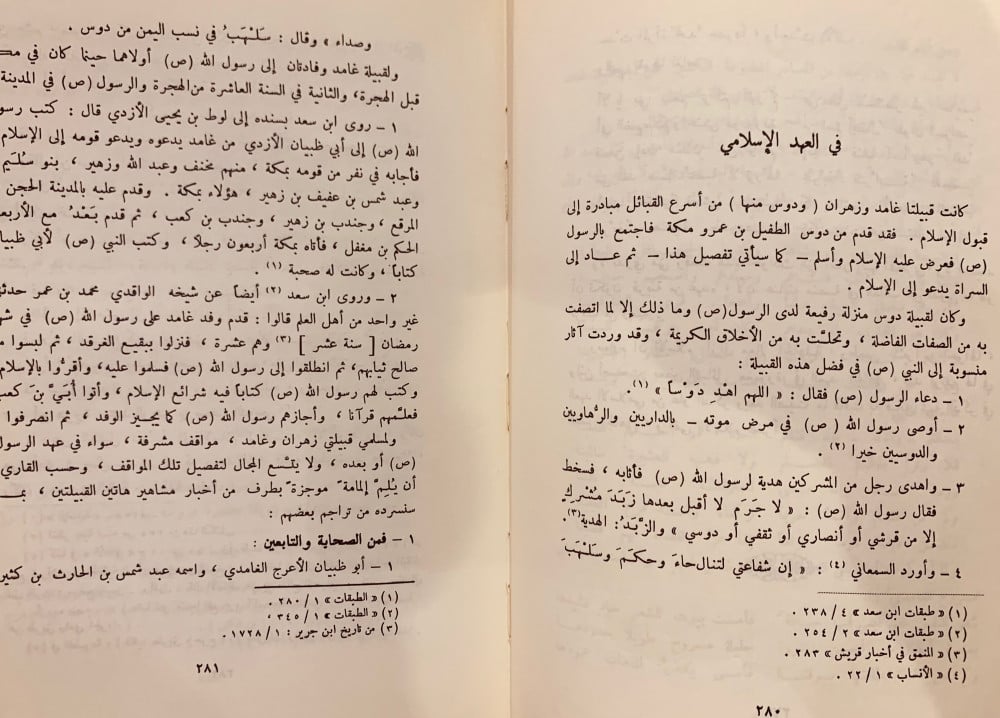 في العهد الإسلامي
كانت قبيلتا غامد وزهران ( ودوس منها ) من أسرع القبائل مبادرة إلى
قبول الإسلام . فقد قدم من دوس الطفيل بن عمرو مكة فاجتمع بالرسول
(ص) فعرض عليه الإسلام وأسلم – كما سيأتي تفصيل هذا – ثم عــاد إلى
السراة يدعو إلى الإسلام .
وكان لقبيلة دوس منزلة رفيعة لدى الرسول(ص) وما ذلك إلا لما اتصفت
به من الصفات الفاضلة ، وتحلّت به من الأخلاق الكريمة ، وقد وردت آثار
منسوبة إلى النبي (ص) في فضل هذه القبيلة :
١ – دعاء الرسول (ص) فقال : « اللهم اهْدِ دَوْساً » (١).
٢ – أوصى رسول الله ( ص) في مرض موته – بالداريين والرُّهاويين
والدوسيين خيرا (٢) .
٣ – واهدى رجل من المشركين هدية لرسول الله (ص) فأثابه ، فسخط
فقال رسول الله (ص) : « لا جَرَمَ لا أقبل بعدها زَبَدَ مُشْرِكٍ
إلا من قرشي أو أنصاري أو ثقفي أو دوسي » والزَّبَدُ: الهدية(٣).
٤ – وأورد السمعاني (٤) : « إن شفاعتي لتنال حاءَ وحكَمَ وسَلْهَبَ
(١) « طبقات ابن سعد » ٤ / ٢٣٨ .
(٢) « طبقات ابن سعد » ٢ / ٢٥٤ .
(٣) « المنمق في أخبار قريش » ٢٨٣ .
(٤) « الأنساب » ١ / ٢٢ .
٢٨٠
وصداء » وقال : سَلْهَبُ في نسب اليمن من دوس .
ولقبيلة غامد وفادتان إلى رسول الله (ص) أولاهما حينما كان في
قبل الهجرة، والثانية في السنة العاشرة من الهجرة والرسول (ص) في المدينة
١ – روى ابن سعد بسنده إلى لوط بن يحيى الأزدي قال : كتب
الله (ص) إلى أبي ظبيان الأزدي من غامد يدعوه ويدعو قومه إلى الإسلام
فأجابه في نفر من قومه بمكة ، منهم مخنف وعبد الله وزهير ، بنو سُلَيم
وعبد شمس بن عفيف بن زهير ، هؤلاء بمكة . وقدم عليه بالمدينة الحجن
المرقع ، وجندب بن زهير ، وجندب بن كعب ، ثم قدم بَعْدُ مع
الحكم بن مغفل ، فأتاه بمكة أربعون رجلا ، وكتب النبي (ص) لأبي
كتاباً ، وكانت له صحبة (١) .
٢ – وروى ابن سعد (٢) أيضاً عن شيخه الواقدي محمد بن عمر
غير واحد من أهل العلم قالوا : قدم وفد غامد على رسول الله (ص) في
رمضان [ سنة عشر ] (٣) وهم عشرة ، فنزلوا ببقيع الغرقد ، ثم لبسوا
صالح ثيابهم، ثم انطلقوا إلى رسول الله (ص) فسلموا عليه، وأقرُّوا بالإسلام
وكتب لهم رسول الله (ص) كتاباً فيه شرائع الإسلام ، وأتوا أُبَيَّ بْنَ كعب
فعلّمهم قرآنا ، وأجازهم رسول الله (ص) كما يجيز الوفد ، ثم انصرفوا
ولمسلمي قبيلتي زهران وغامد ، مواقف مشرفة ، سواء في عهد الرسول
(ص) أو بعده ، ولا يتّسع المجال لتفصيل تلك المواقف ، وحسب القاري
أن يُلِمَّ إلمامة موجزة بطرف من أخبار مشاهير هاتين القبيلتين ،
سنسرده من تراجم بعضهم :
١ – فمن الصحابة والتابعين :
١ – أبو ظبيان الأعرج الغامدي ، واسمه عبد شمس بن الحارث بن كثير
(١) « الطبقات » ١ / ٢٨٠ .
(٢) « الطبقات » ١ / ٣٤٥ .
(٣) من تاريخ ابن جرير : ١ / ١٧٢٨ .
٢٨١